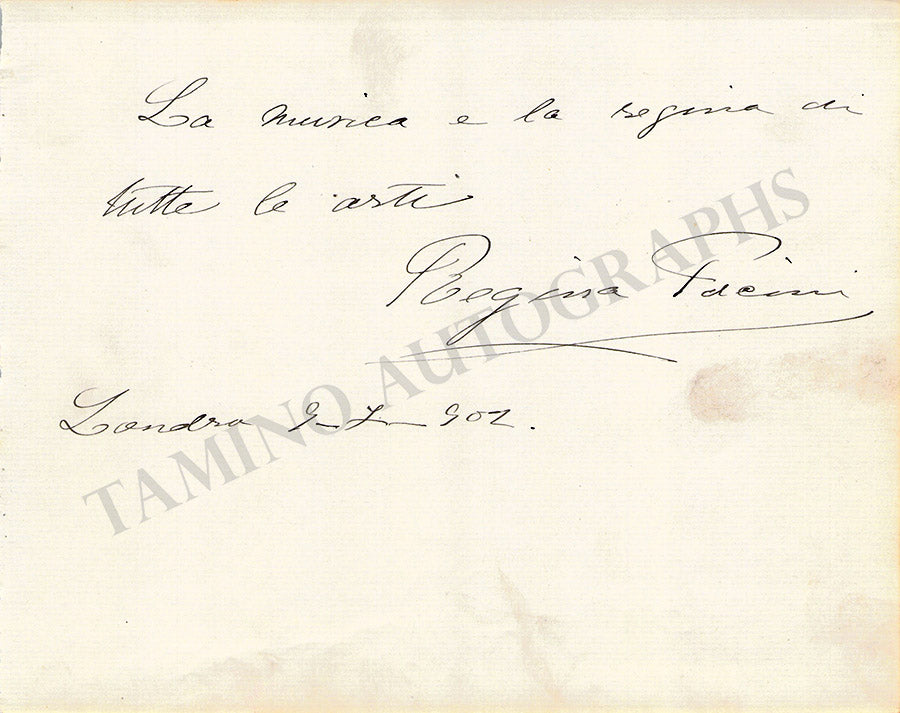 La musica e la regina di
tutte le arti
Regina Pacini
TAMINO AUTOGRAPHS
Londra 9-7-902.